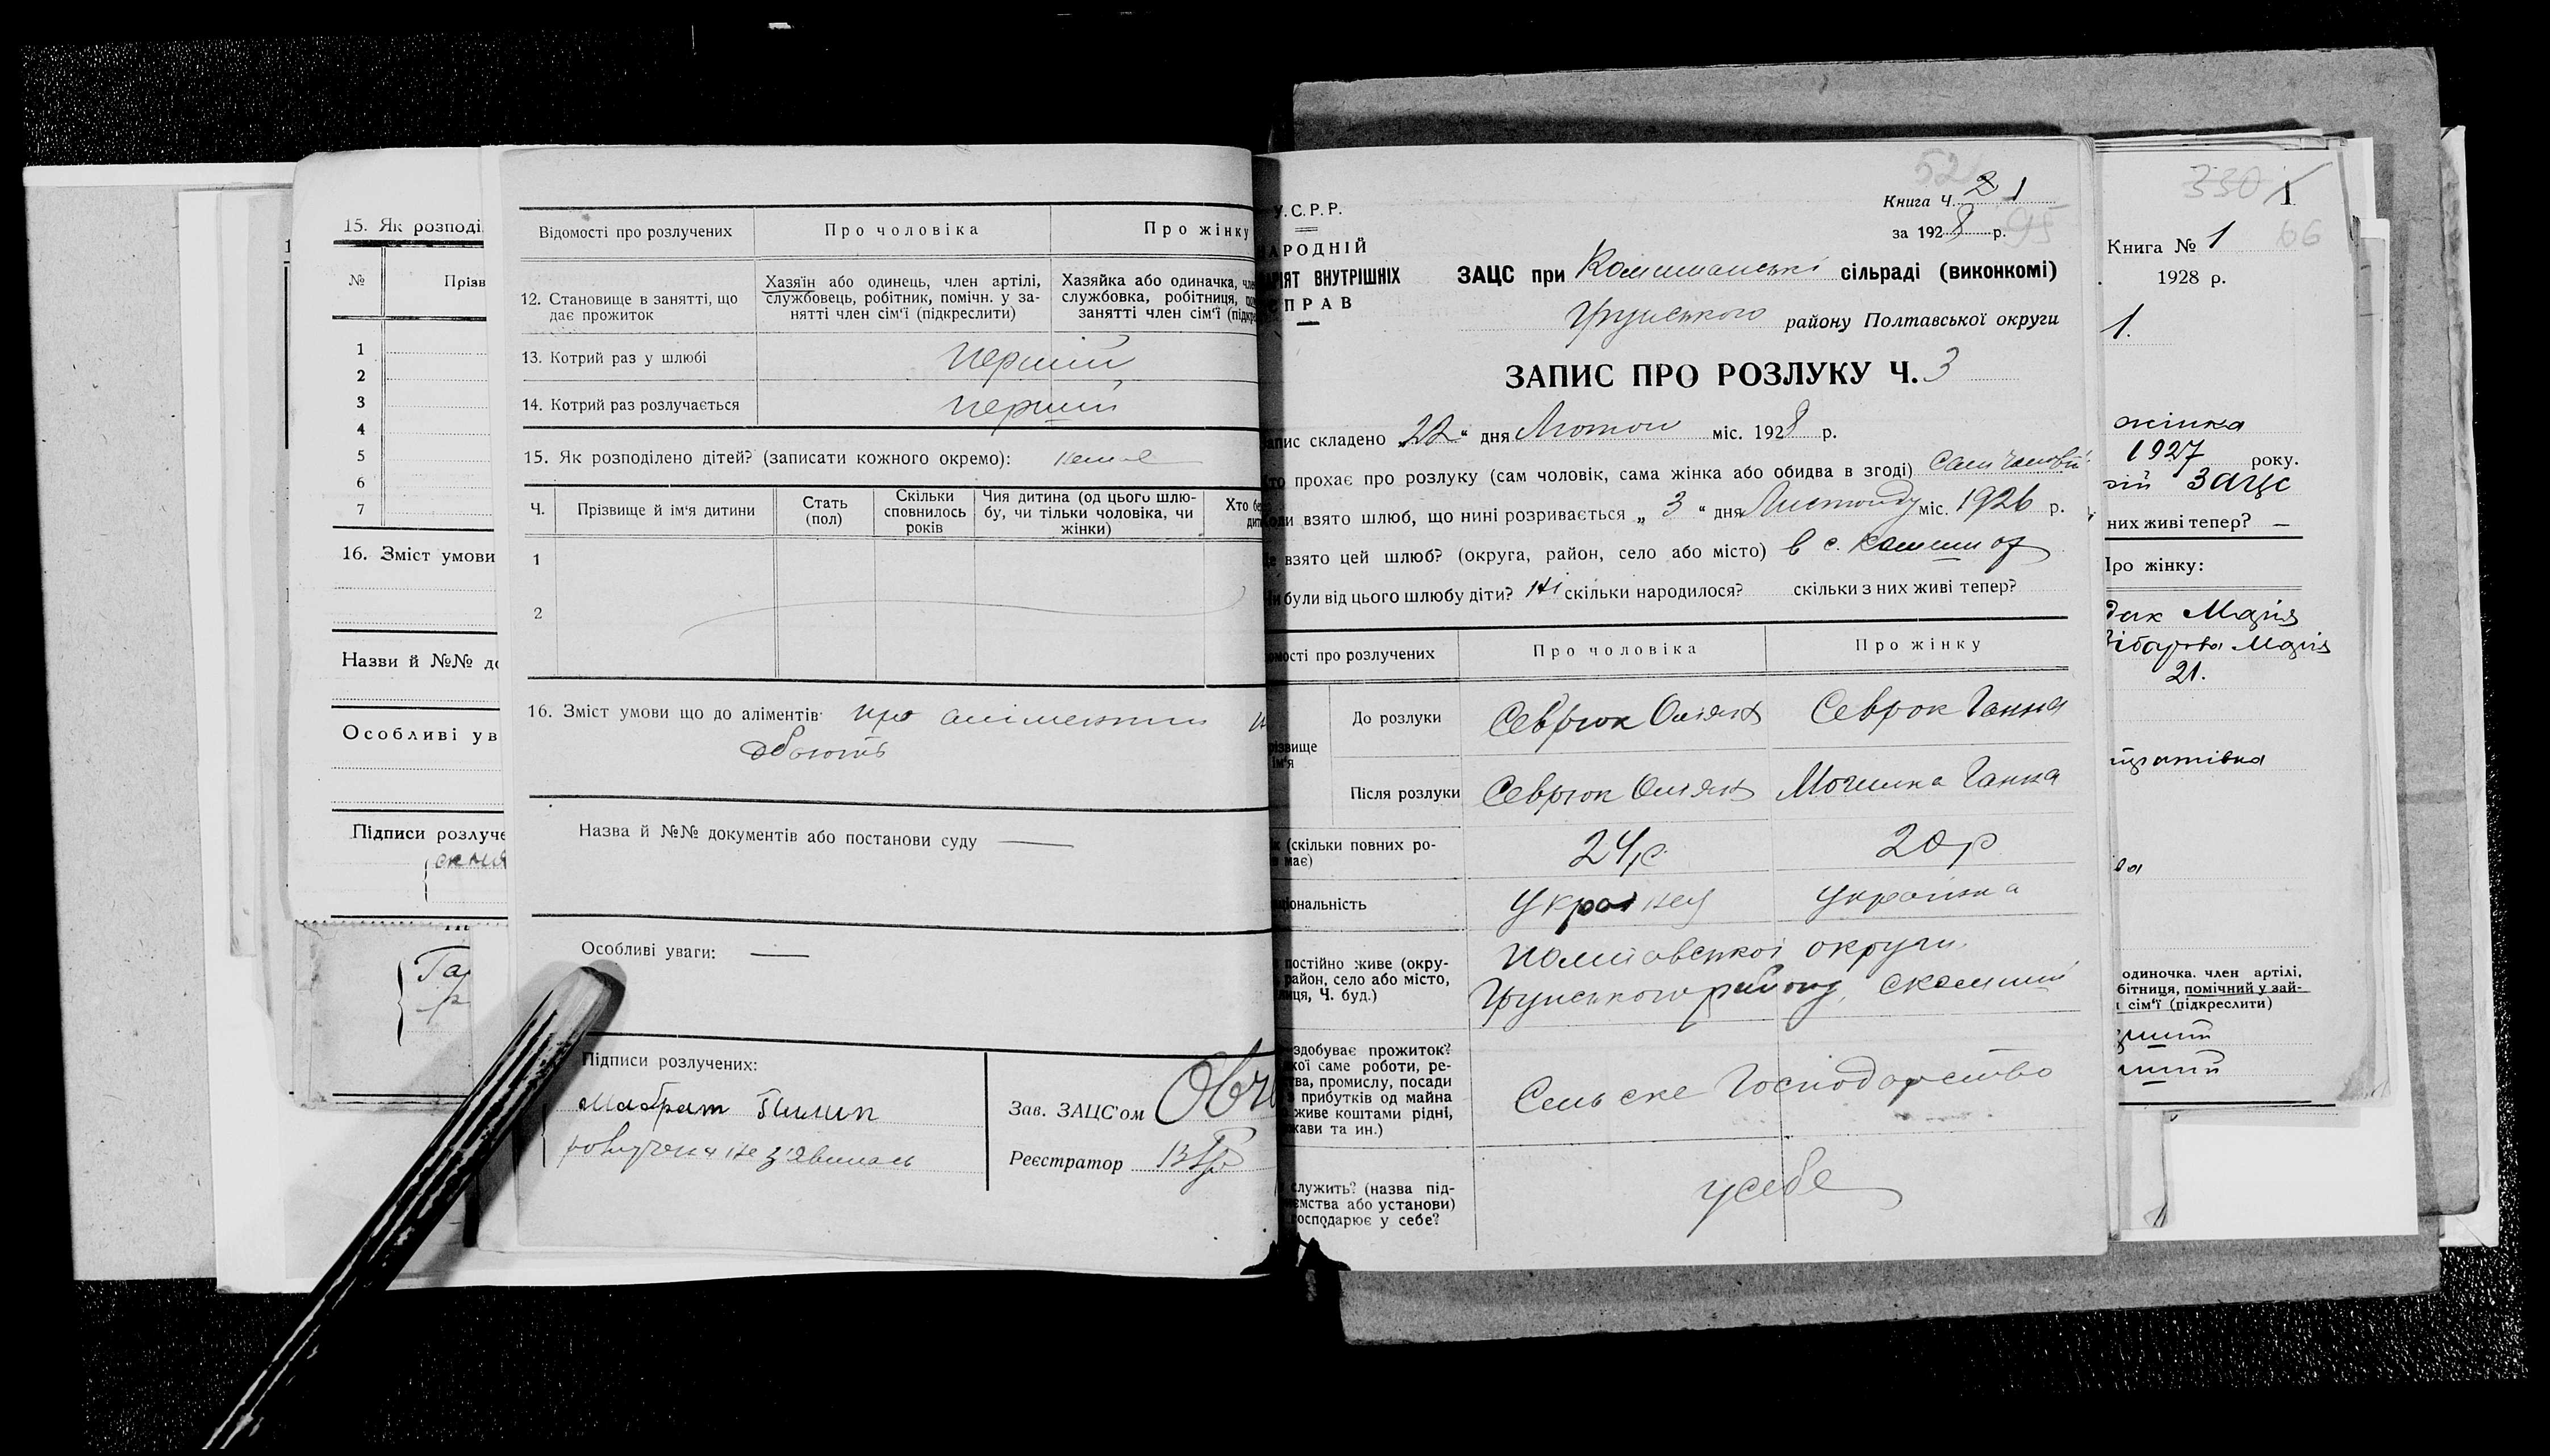 15. Як розподі
№
Прізв
1
2
3
4
5
6
7
16. Зміст умови
Назви й №№ до
Особливі ув
Підписи розлуче
Відомості про розлучених
Про чоловіка
Про жінку
12. Становище в занятті, що
дає прожиток
Хазяїн або одинець, член артілі,
службовець, робітник, помічн. у за-
нятті член сім'ї (підкреслити)
Хазяйка або одиначка, чле
службовка, робітниця, по
занятті член сім'ї (підкре
13. Котрий раз у шлюбі
перший
14. Котрий раз розлучається
перший
15. Як розподілено дітей? (записати кожного окремо): немає
Ч.
Прізвище й ім'я дитини
Стать
(пол)
Скільки
сповнилось
років
Чия дитина (од цього шлю-
бу, чи тільки чоловіка, чи
жінки)
Хто бе
дит
1
2
16. Зміст умови що до аліментів: про аліменти
дбають
Назва й №№ документів або постанови суду —
Особливі уваги: —
Підписи розлучених:
Пилип
розлучена не з'явилась
Зав. ЗАЦС'ом
Реєстратор
52
Книга Ч. 2 1
за 1928 р. 95
У.С.Р.Р.
АРОДНІЙ
АРІЯТ ВНУТРІШНІХ
СПРАВ
ЗАЦС при Комишанські сільраді (виконкомі)
Грунського району Полтавської округи
ЗАПИС ПРО РОЗЛУКУ Ч. 3
апис складено „22“ дня Лютого міс. 1928 р.
то прохає про розлуку (сам чоловік, сама жінка або обидва в згоді) Сам чоловік
оди взято шлюб, що нині розривається „3“ дня Листопаду міс. 1926 р.
е взято цей шлюб? (округа, район, село або місто) в с. Комишах
и були від цього шлюбу діти? Ні скільки народилося? скільки з них живі тепер?
омості про розлучених
Про чоловіка
Про жінку
різвище
ім'я
До розлуки
Севрюк Омелян
Севрюк Ганна
Після розлуки
Севрюк Омелян
Могилка Ганна
к (скільки повних ро-
в має)
24 р.
20 р
ціональність
Українец
Українка
постійно живе (окру-
район, село або місто,
лиця, Ч. буд.)
Полтавської округи
Грунського району, с Комиші
здобуває прожиток?
кої саме роботи, ре-
тва, промислу, посади
прибутків од майна
живе коштами рідні,
жави та ин.)
Сельске Господарство
служить? (назва під-
ємства або установи)
господарює у себе?
у себе
330 1
Книга № 1 66
1928 р.
1.
жінка
1927 року.
Загс
них живі тепер? —
Про жінку:
дик Марія
Марія
21.
одиночка. член артілі,
бітниця, помічний у зай-
сім'ї (підкреслити)